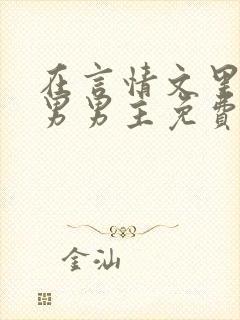 在言情文里
男男主免費
金汕